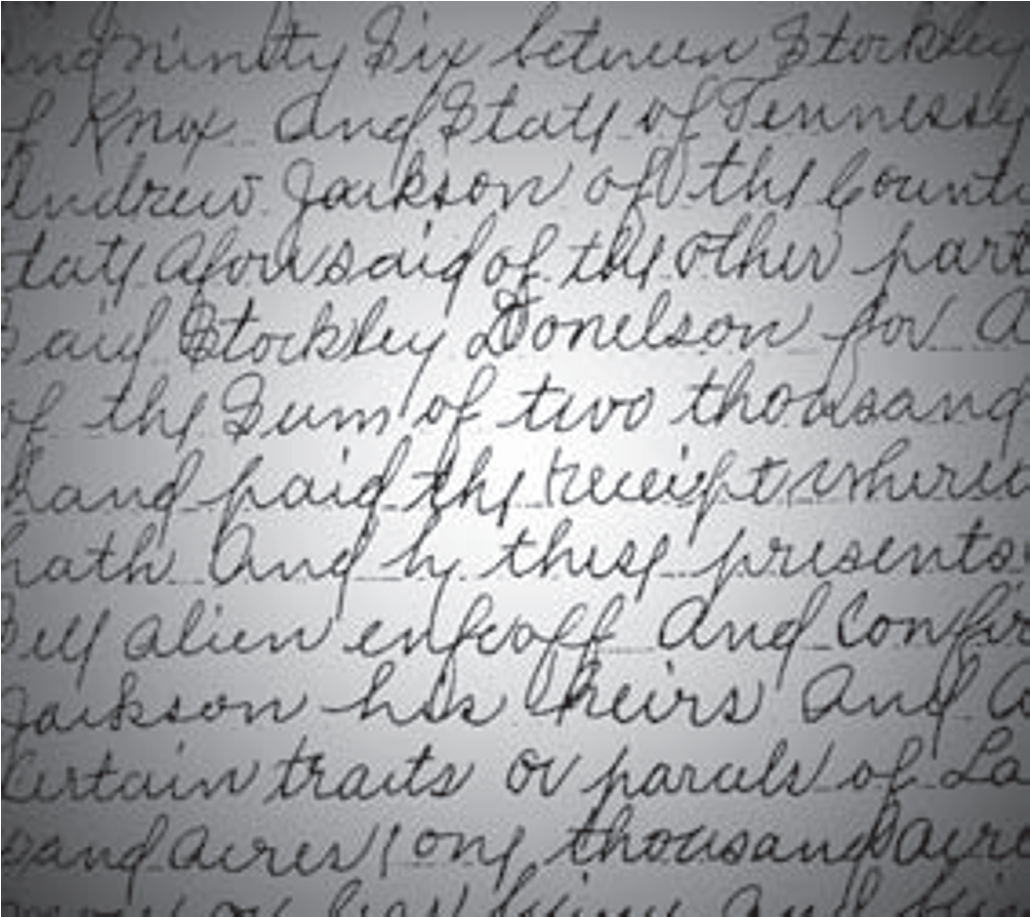 and ninity Six between Stockley
of Knox And State of Tennessee
Andrew Jackson of the County
State Aforesaid of the other part
Said Stockley Donelson for A
of the Sum of two thousand
hand paid the receipt where
hath And by these presents
Sell alien enfeoff And Confir
Jackson his heirs And A
Certain tracts or parcels of La
sand Acres (one thousand Acre
or less being And bein